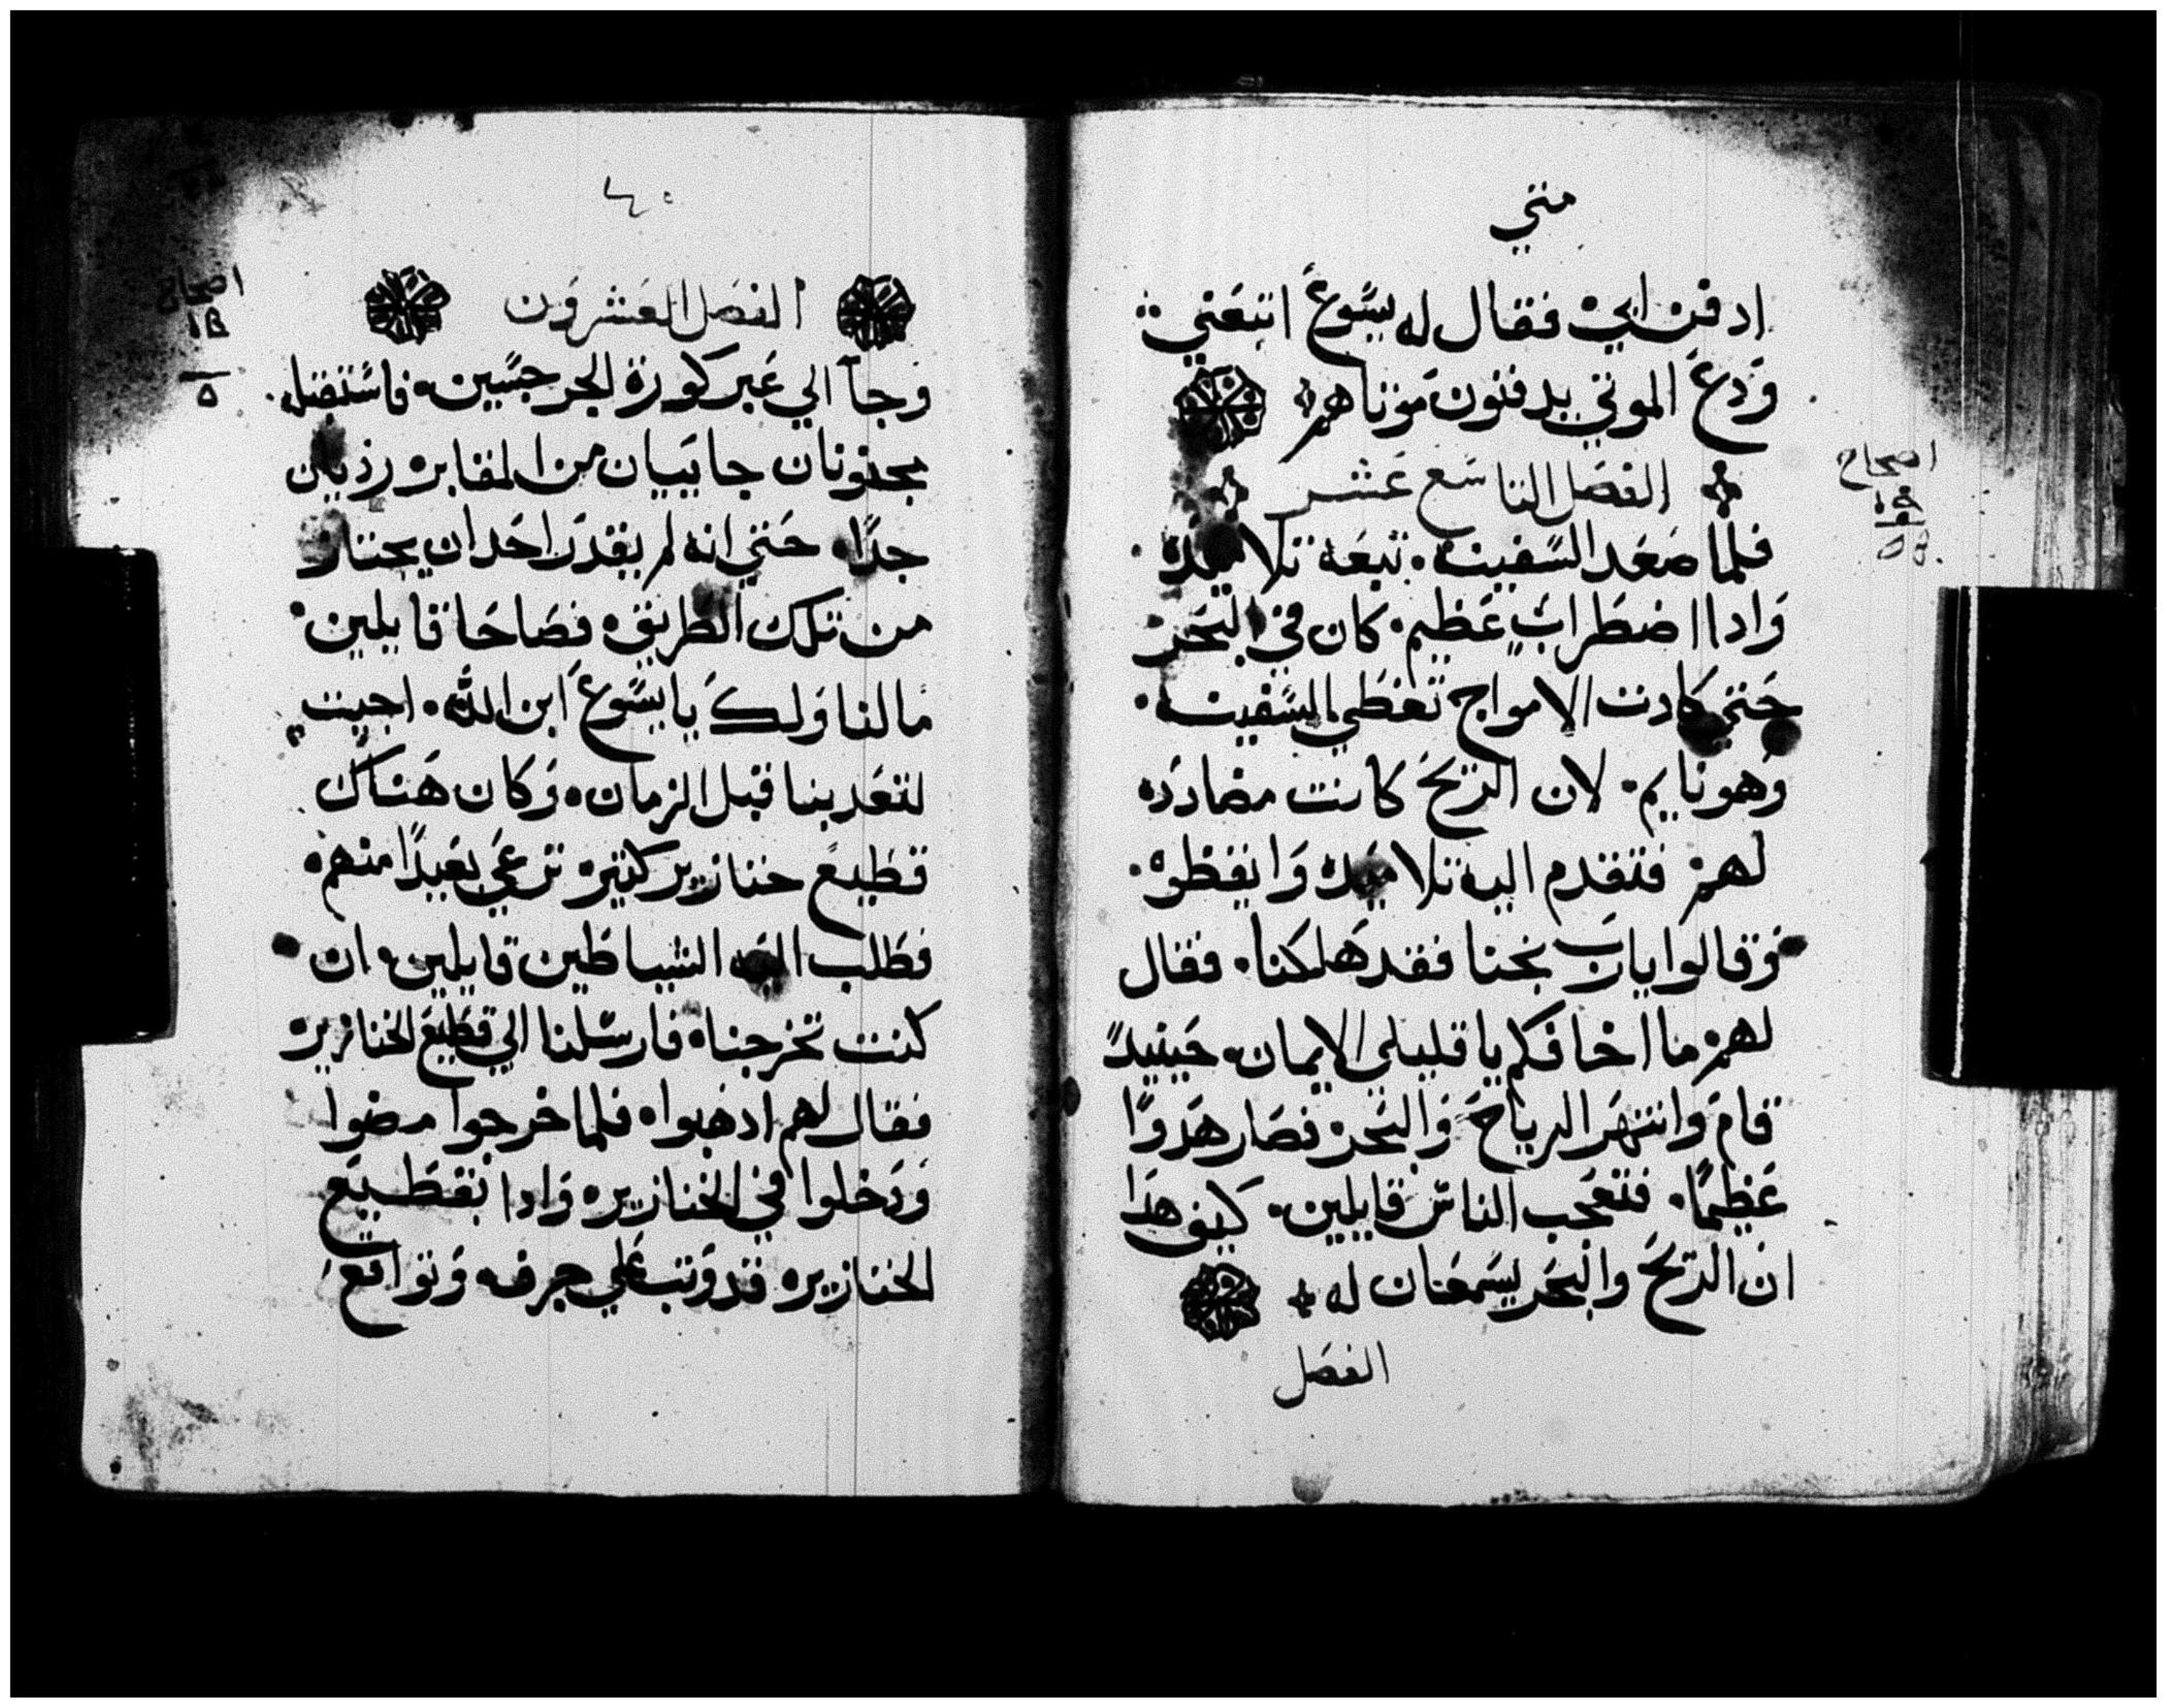 متي
ادفن ابي. فقال له يسوع اتبعني
ودع الموتي يدفنون موتاهم
الفصل التاسع عشر
اصحاح
فلما صعد السفينه. تبعه تلاميده
وادا اضطراب عظيم. كان في البحر
حتي كادت الامواج تغطي السفينه.
وهو نايم. لان الريح كانت مضادده
لهم. فتقدم اليه تلاميده وايقظوه.
وقالوا يارب نجنا فقد هلكنا. فقال
لهم. ما اخافكم يا قليلي الايمان. حينيدً
قام وانتهر الرياح والبحر. فصار هدوًا
عظيمًا. فتعجب الناس قايلين. كيف هدا
ان الريح والبحر يسمعان له
الفصل
٤٠
الفصل العشرون
اصحاح
وجآ الي عبر كورة الجرجسيين. فاستقبله
مجنونان جاييان من المقابر. رذيان
جدًا. حتي انه لم يقدر احد ان يجتاز
من تلك الطريق. فصاحا قايلين.
مالنا ولك يا يسوع ابن الله. اجيت
لتعدبنا قبل الزمان. وكان هناك
قطيع خنازير كتيره ترعي بعيدًا منهم.
فطلب اليه الشياطين قايلين. ان
كنت تخرجنا. فارسلنا الي قطيع الخنازير.
فقال لهم ادهبوا. فلما خرجوا مضوا
ودخلوا في الخنازير. وادا بقطيع
الخنازير. قد وتب علي جرف. وتواقع